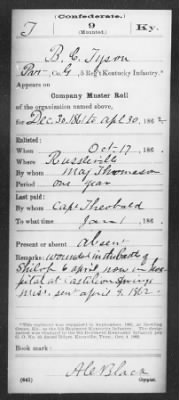 (Confederate.)
T 9 Ky.
(Mounted.)
B. C. Tyson
Pvt, Co. G, 5 Reg't Kentucky Infantry.*
Appears on
Company Muster Roll
of the organization named above,
for Dec. 30, 1861 to Apl 30, 1862
Enlisted:
When Oct. 17, 186
Where Russleville
By whom Maj Thomason
Period one year
Last paid:
By whom Capt. Theobald
To what time Jan 1, 186
Present or absent Absent
Remarks: wounded in the battle of
Shiloh 6 April, now in hos
pital at Castilion Springs
Miss. sent April 9, 1862.
Book mark:
A. C. Black
(642) Copyist.